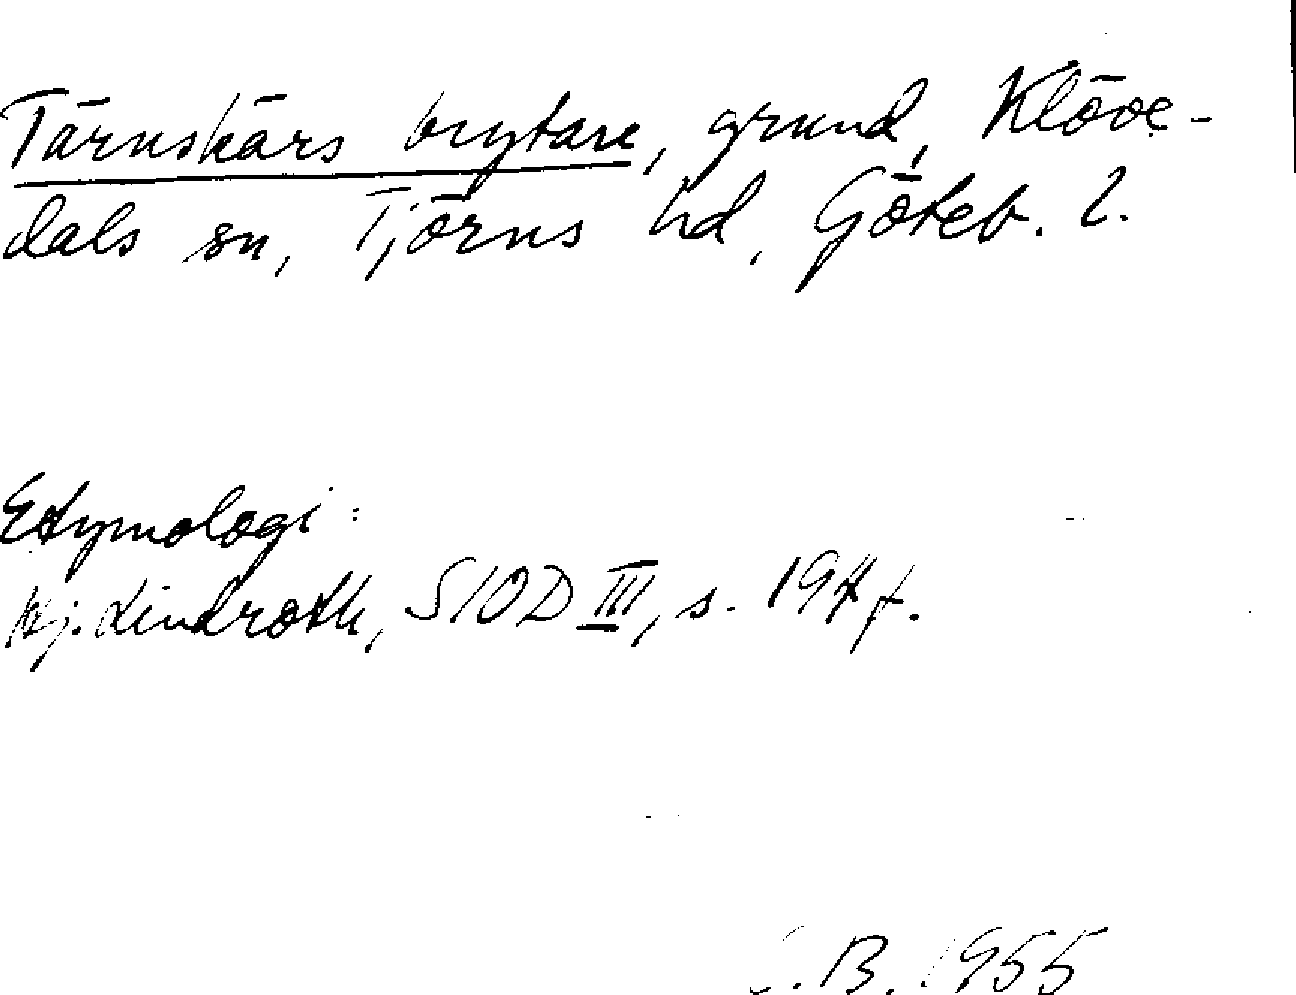 Tärnskärs brytare, grund, Klöve-
dals sn, Tjörns hd, Göteb. l.
Etymologi:
Hj. Lindroth, SIOD III, s. 197 f.
B. 1955